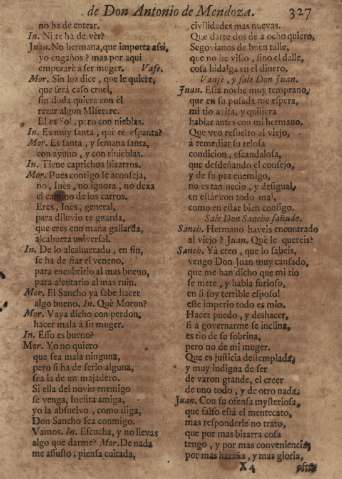 de Don Antonio de Mendoza. 327
no ha de entrar.
In. Ni te ha de vèr?
Juan. No hermana, que importa assi,
yo engaños? mas por aqui
empezarè à ser muger. Vase.
Mor. Sin luz dice, que le quiere,
que serà caso cruel,
sin duda quiere con èl
rezar algun Miserere.
El es Sol, pero con nieblas.
In. Es muy santa, què te espanta?
Mor. Es santa, y semana santa,
con ayuno, y con tinieblas.
In. Tiene caprichos bizarros.
Mor. Pues contigo se aconseja,
no, Ines, no ignora, no dexa
el camino de los carros.
Eres, Ines, general,
para diluvio te guarda,
que eres con maña gallarda,
alcahueta universal.
In. De lo alcahuetado, en fin,
se ha de fiar el veneno,
para encubrirlo al mas bueno,
para al mas ruin.
Mor. El Sancho ya sabe hacer
algo bueno. In. Què Moron?
Mor. Vaya dicho con perdon,
hacer mala à su muger.
In. Esso es bueno?
Mor. Yo no quiero
que sea mala ninguna,
pero si ha de serlo alguna,
sea la de un majadero.
Si ella del novio enemigo
se venga, su
yo la absuelvo, como diga,
Don Sancho sea conmigo.
Vamos. In. Escucha, y no llevas
algo que darme? Mor. De nada
me assusto, piensa cuitada,
civilidades mas nuevas.
Que darte dos ò à ocho quiero,
Segovianos de buen talle,
que no he visto, sino el dalle,
cosa hidalga en el dinero.
Vanse, y sale Don Juan.
Juan. Esta noche muy temprano,
que en su posada me espera,
mi tio avisa, y quisiera
hablar antes con mi hermano.
Que veo resuelto al viejo,
à remediar su zelosa
condicion, escandalosa,
que desdeñando el consejo,
y de su paz enemigo,
no es tan necio, y desigual,
en estàr con todo mal,
como en estàr bien contigo.
Sale Don Sancho sañudo.
Sanch. Hermano haveis encontrado
al viejo? Juan. Què le quereis?
Sanch. Yà creo, que lo sabeis,
vengo Don Juan muy cansado,
que me han dicho que mi tio
se mete, y habla furioso,
en si soy terrible esposo!
este imperio todo es mio.
Hacer puedo, y deshacer,
si à governarme se inclina,
es tio de su sobrina,
pero no de mi muger.
Que es justicia destemplada,
y muy indigna de ser
de varon grande, el creer
de uno todo, y de otro nada.
Juan. Con su ofensa mysteriosa,
que falso està el mentecato,
mas responderle no trato,
que por mas bizarra cosa
tengo, y por mas conveniencia,
por mas hazaña, y mas gloria,
X4